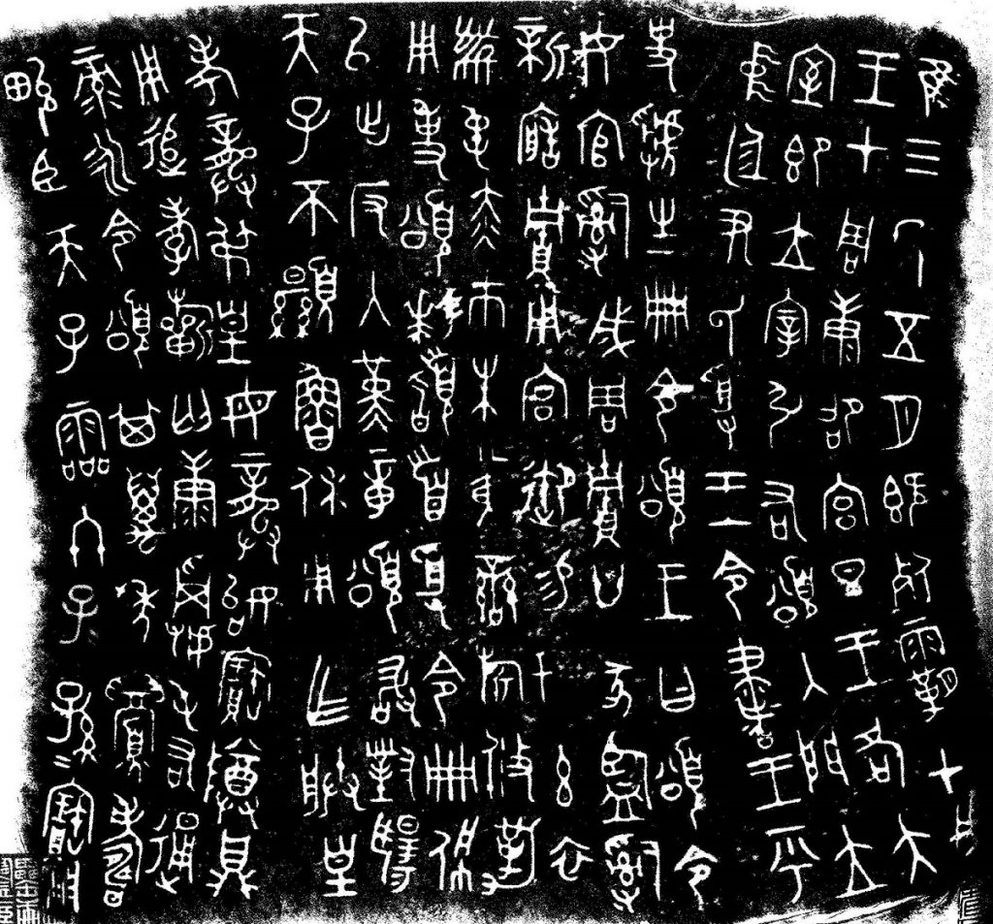 隹三年五月既死霸甲戌
王才周康卲宮旦王各大
室即立宰引右頌入門立
中廷尹氏受王令書王乎
史虢生冊令頌王曰頌令
女官𤔲成周貯廿家監𤔲
新造貯用宮御易女玄衣
黹屯赤巿朱黃鑾旂攸勒
用事頌拜𩒨首受令冊佩
以出反入堇章頌敢對揚
天子不顯魯休用乍朕皇
考龔弔皇母龔始寶尊鼎
用追孝祈匄康𩁹屯右通
彔永令頌其萬年眉壽
畯臣天子霝冬子=孫=寶用